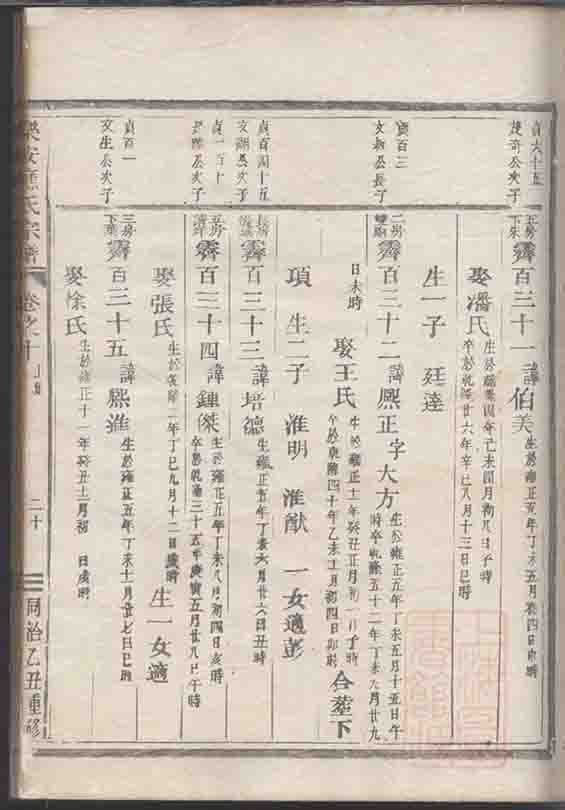 貞六十五
公次子
霽百三十一 諱伯美 生於雍正五年丁未五月初四日申時
娶潘氏 生於康熙四年己未四月初八日子時
卒於乾隆廿六年辛巳八月十三日巳時
生一子 廷達
貞百三
公長子
二房
霽百三十二 諱熙正字大方 生於雍正五年丁未五月十五日午
時卒乾隆五十二年丁未八月廿九
日未時
娶王氏 生於雍正十一年癸丑正月初一日子時
卒於乾隆四十年乙未十一月初四日卯時 合塟下
項 生二子 淮明 淮猷 一女適彭
貞百四十五
文 公次子
長房
霽百三十三 諱培德 生雍正五年丁亥六月廿六日丑時
貞一百十
公次子
五房
霽百三十四 諱鍾傑 生於雍正五年丁未八月初四日亥時
卒於乾隆三十五年庚寅五月廿八日午時
娶張氏 生於乾隆二年丁巳九月十二日歲時 生一女適
貞百一
文生公次子
三房
下葉
霽百三十五 諱熙淮 生於雍正五年丁未十二月廿七日巳時
娶徐氏 生於雍正十一年癸丑十二月初 日歲時
樂安 氏宗譜
卷之十
二十
同治乙丑重修